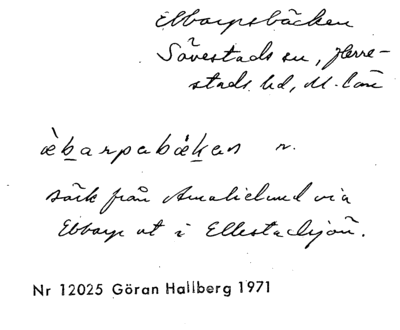 Ebbarpsbäcken
Sövestads sn, Herre-
stads hd, M. län
æ̀barpabækan n.
bäck från Amalielund via
Ebbarp ut i Ellestadsjön.
Nr 12025 Göran Hallberg 1971